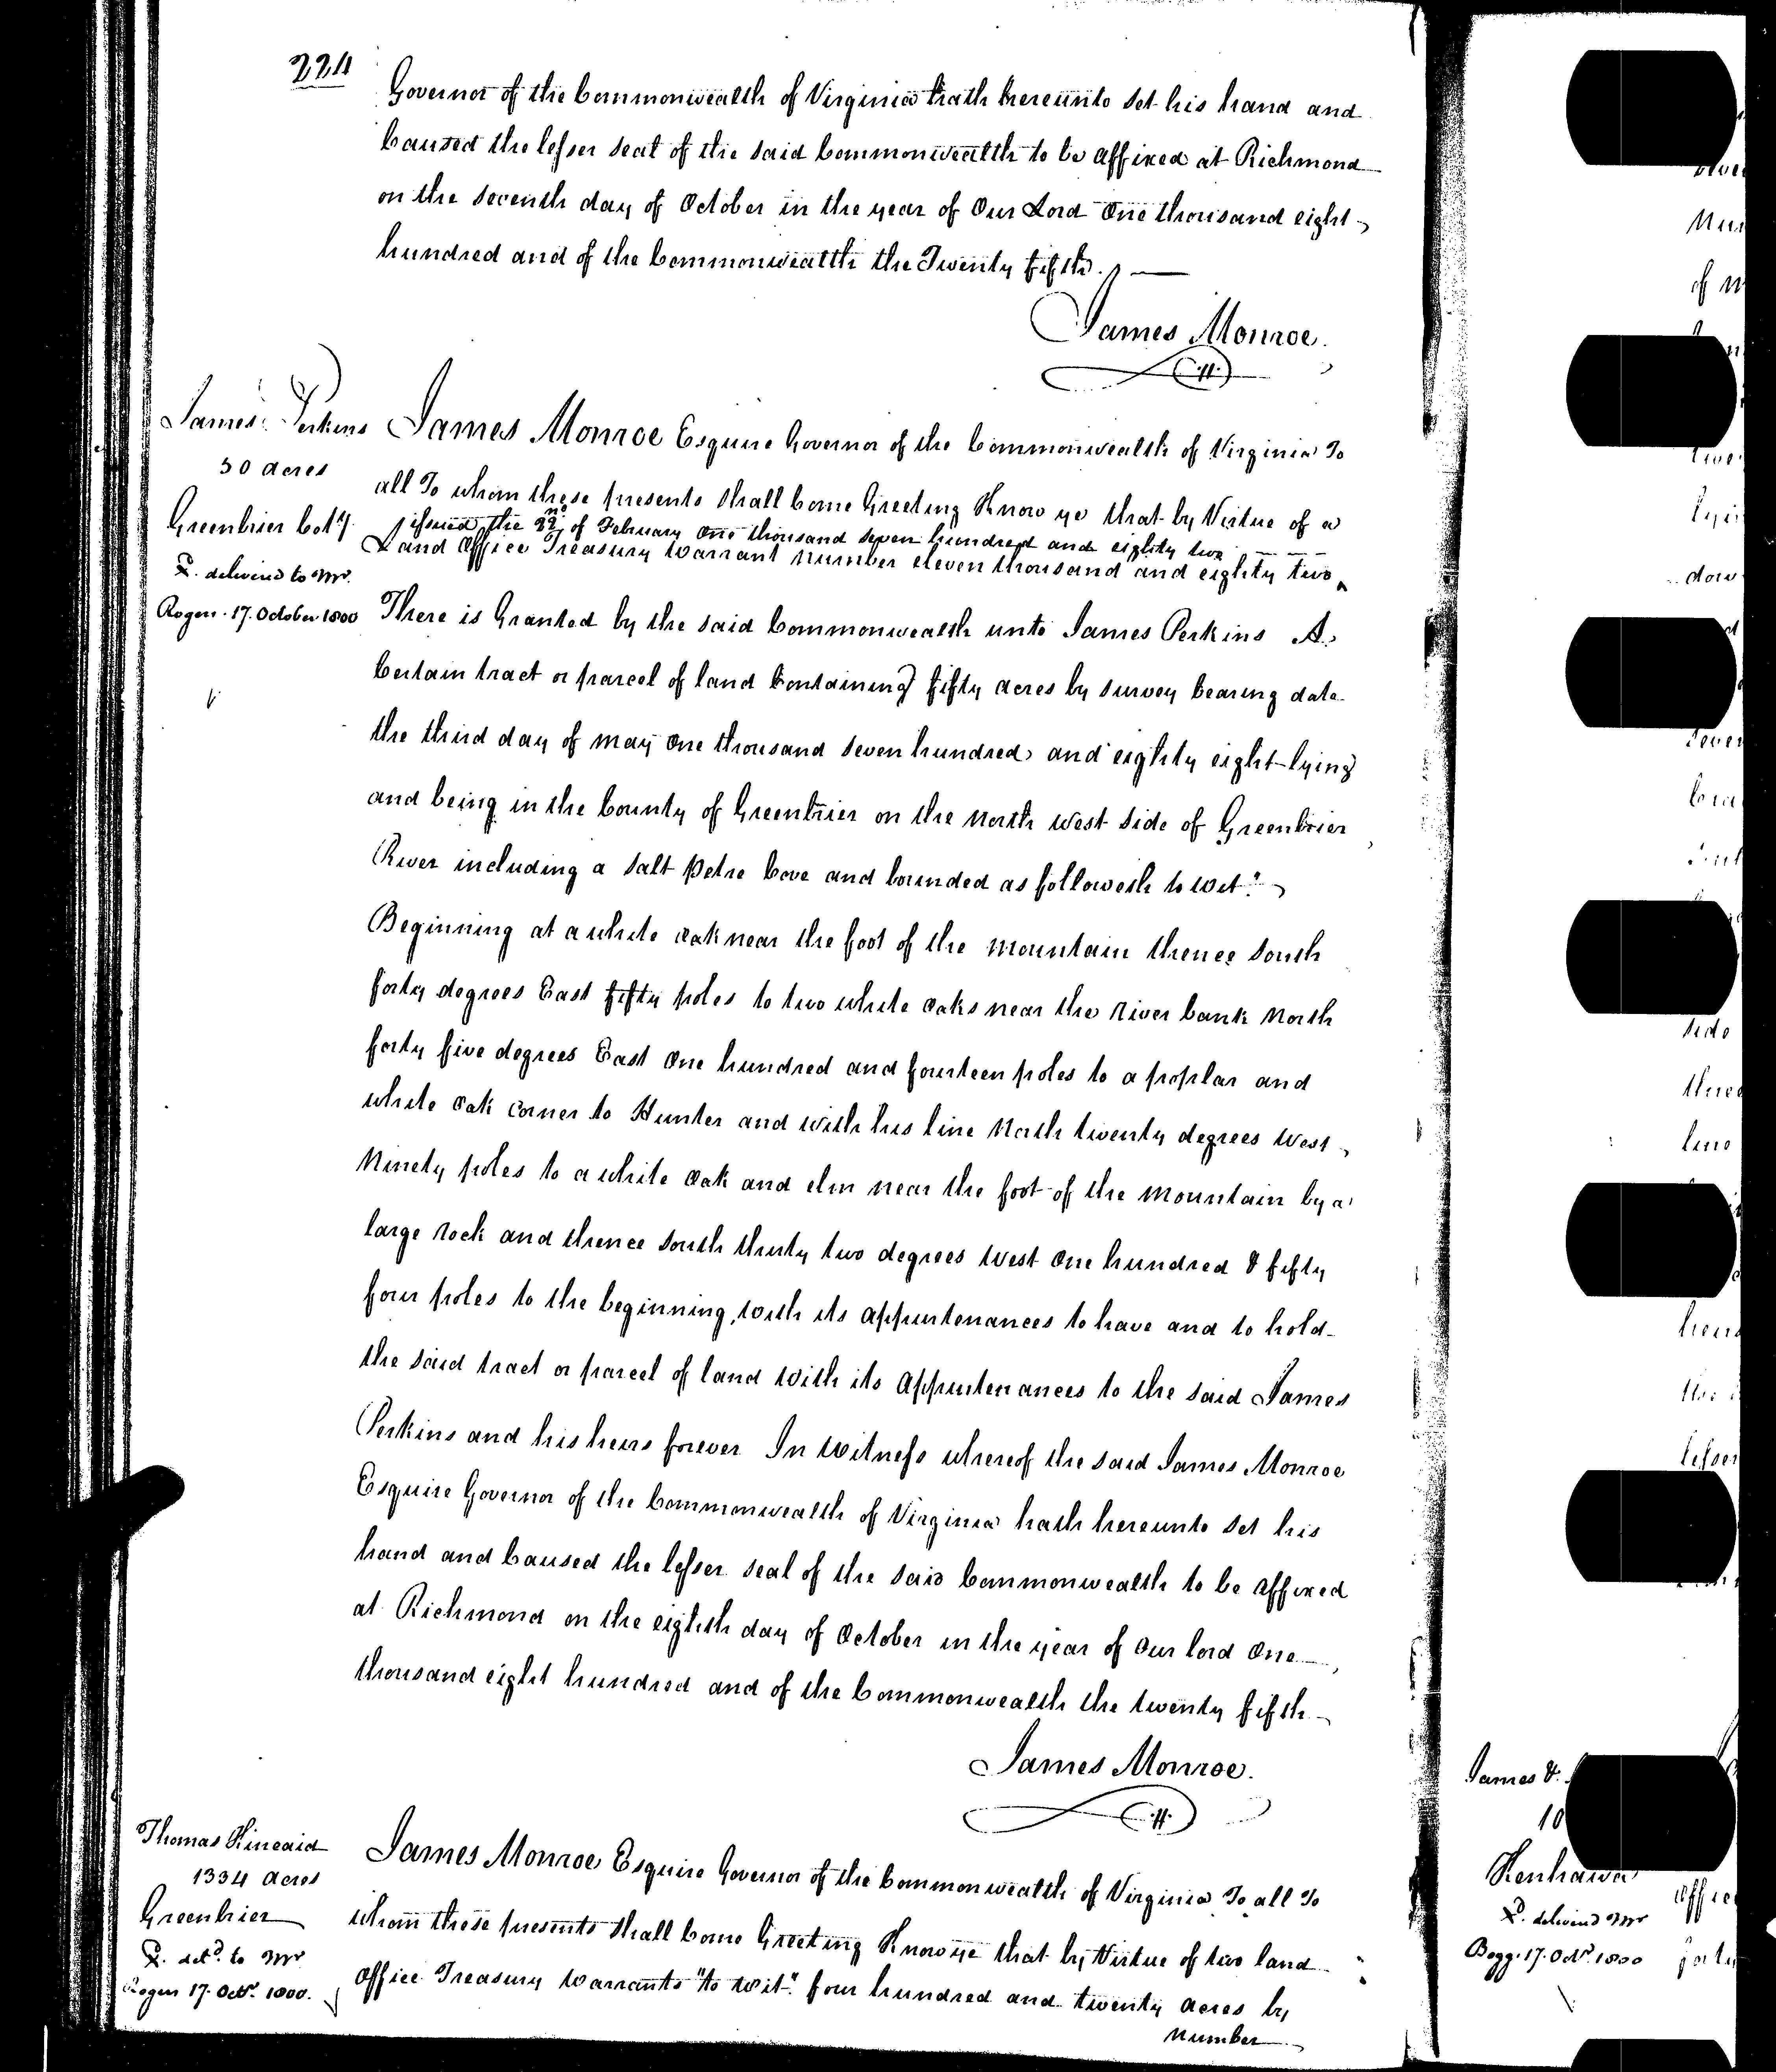 224
Governor of the Commonwealth of Virginia hath hereunto set his hand and
Caused the lesser seal of the said Commonwealth to be affixed at Richmond
on the seventh day of October in the year of Our Lord One thousand eight
hundred and of the Commonwealth the Twenty fifth.
James Monroe.
James Perkins
50 acres
Greenbrier Coty
D. delivered to Mr.
Rogers. 17. October 1800
James Monroe Esquire Governor of the Commonwealth of Virginia To
all To whom these presents shall Come Greeting Know ye that by Virtue of a
issued the 22nd of February One thousand seven hundred and eighty two
Land Office Treasury Warrant number eleven thousand and eighty two
There is Granted by the said Commonwealth unto James Perkins A
Certain tract or parcel of land Containing fifty acres by survey bearing date
the third day of May One thousand seven hundred and eighty eight lying
and being in the County of Greenbrier on the North west side of Greenbrier
River including a Salt Petre Cave and bounded as followeth to wit"
Beginning at a white oak near the foot of the mountain thence south
forty degrees East fifty poles to two white oaks near the river bank North
forty five degrees East One hundred and fourteen poles to a poplar and
white oak corner to Hunter and with his line North twenty degrees West
Ninety poles to a white oak and elm near the foot of the mountain by a
large rock and thence south thirty two degrees West One hundred & fifty
four poles to the beginning, with its appurtenances to have and to hold
the said tract or parcel of land with its appurtenances to the said James
Perkins and his heirs forever In Witness whereof the said James Monroe
Esquire Governor of the Commonwealth of Virginia hath hereunto set his
hand and Caused the lesser seal of the said Commonwealth to be affixed
at Richmond on the eighth day of October in the year of Our lord One
thousand eight hundred and of the Commonwealth the twenty fifth
James Monroe.
Thomas Kincaid
1334 acres
Greenbrier
D. deld. to Mr
Rogers 17. Octr. 1800.
James Monroe Esquire Governor of the Commonwealth of Virginia To all To
whom these presents shall Come Greeting Know ye that by Virtue of two land
Office Treasury Warrants "to wit" four hundred and twenty acres by
Number
James &
10
Kenhawa
D. delivered Mr
Bogg. 17. Octr. 1800